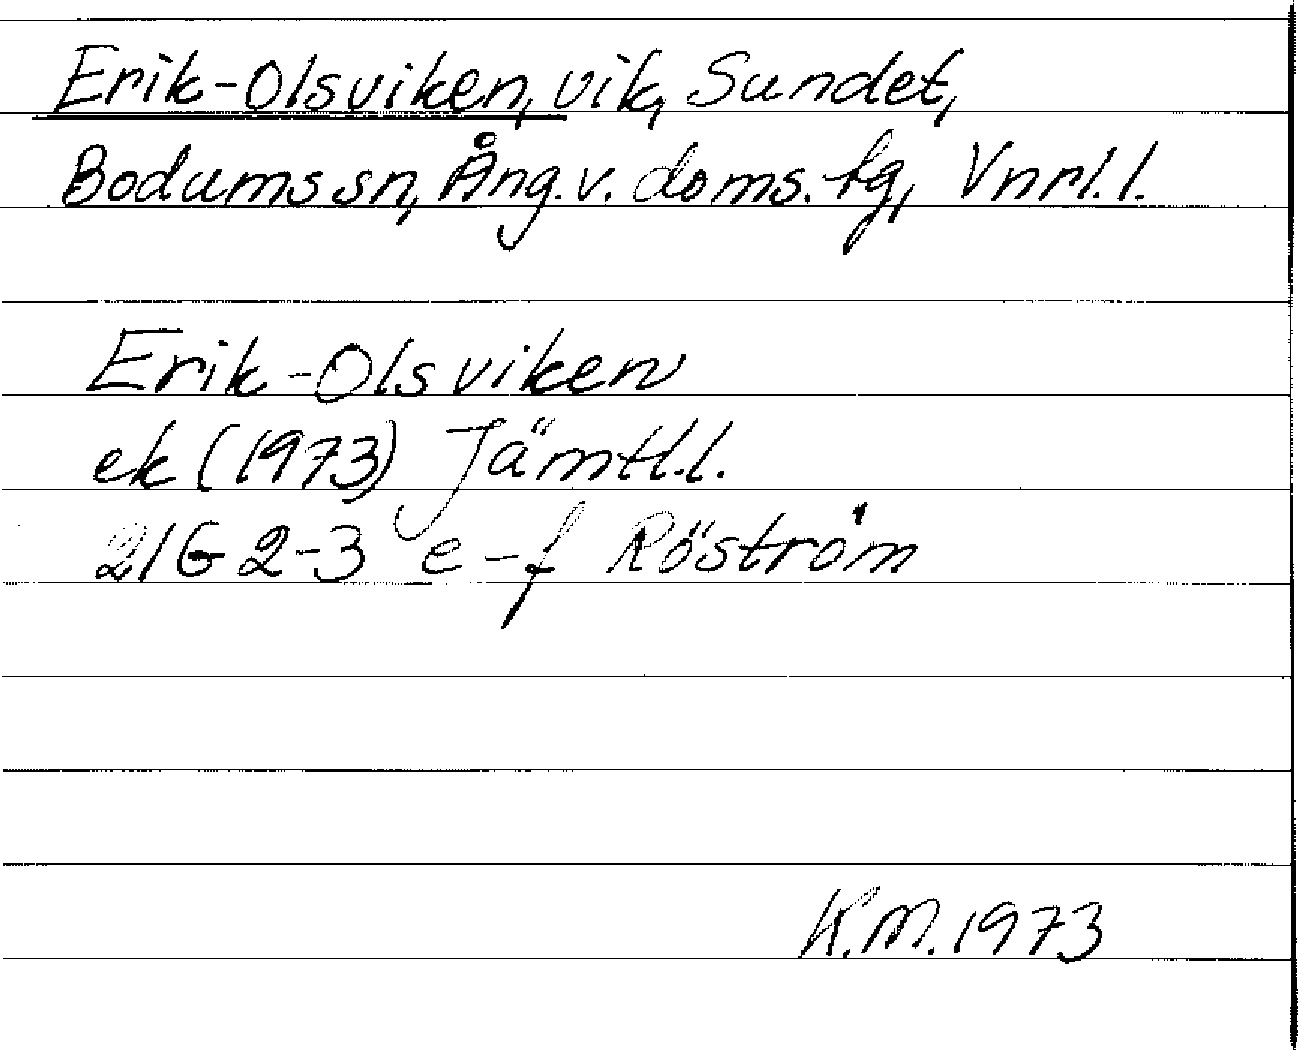 Erik-Olsviken, vik, Sundet,
Bodums sn, Ång. v. doms. tg, Vnrl. l.
Erik-Olsviken
ek (1973) Jämtl. l.
21G 2-3 e-f Röström
K.M. 1973